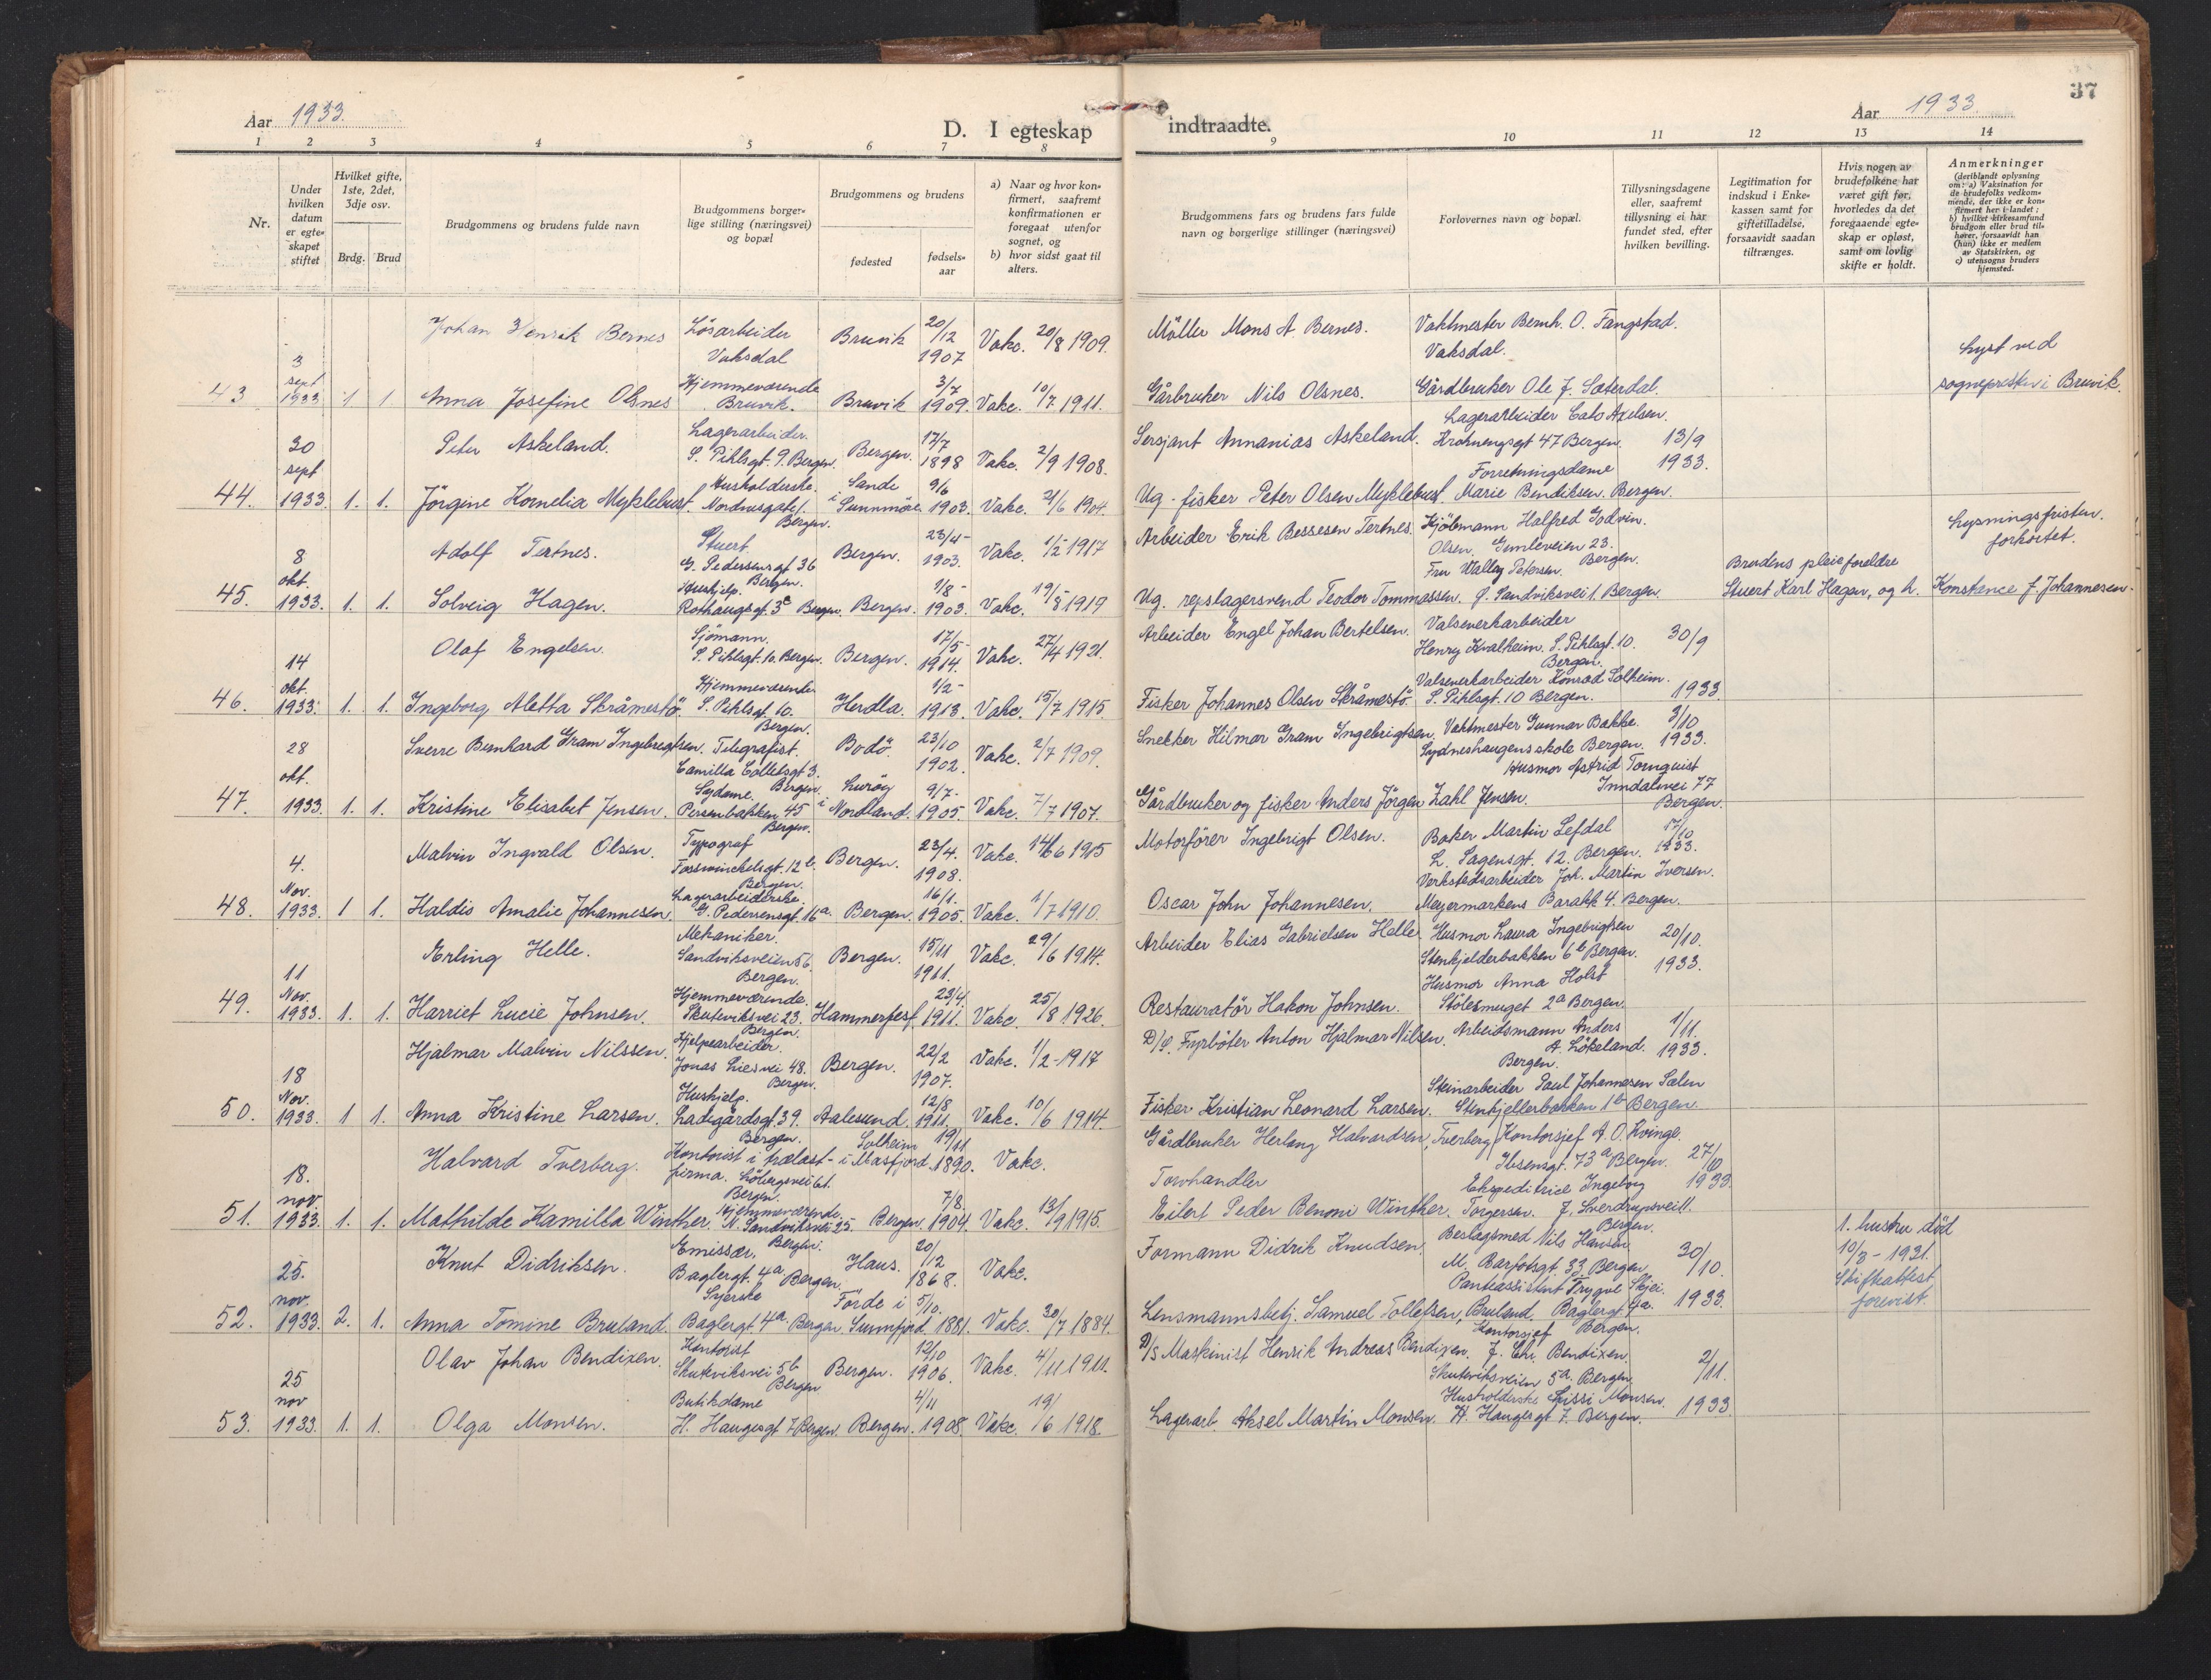 Aar 1933.
D. I egteskap
indtraadte.
Aar 1933
37
1 2 3 4 5 6 7 8 9 10 11 12 13 14
Nr.
Under hvilken datum er egte-skapet stiftet
Hvilket gifte, 1ste, 2det, 3dje osv.
Brdg. Brud
Brudgommens og brudens fulde navn
Brudgommens borger-lige stilling (næringsvei) og bopæl
Brudgommens og brudens
fødested
fødsels-aar
a) Naar og hvor kon-firmert, saafremt konfirmationen er foregaat utenfor sognet, og
b) hvor sidst gaat til alters.
Brudgommens fars og brudens fars fulde navn og borgerlige stillinger (næringsvei)
Forlovernes navn og bopæl.
Tillysningsdagene eller, saafremt tillysning ei har fundet sted, efter hvilken bevilling.
Legitimation for indskud i Enke-kassen samt for giftetilladelse, forsaavidt saadan tiltrænges.
Hvis nogen av brudefolkene har været gift før, hvorledes da det foregaaende egte-skap er opløst, samt om lovlig skifte er holdt.
Anmerkninger
(deriblandt oplysning om: a) Vaksination for de brudefolks vedkom-mende, der ikke er kon-firmert her i landet; b) hvilket kirkesamfund brudgom eller brud til-hører, forsaavidt han (hun) ikke er medlem av Statskirken, og c) utensogns bruders hjemsted.
Johan Henrik Bernes Løsarbeider Vaksdal Bruvik 20/12 1907 Vakc. 20/8 1909. Møller Mons A. Bernes. Vaktmester Bernh. O. Fangstad. Vaksdal. Lyst ved sognepresten i Bruvik.
43 3 sept 1933 1 1. Anna Josefine Olsnes Hjemmeværende Bruvik. Bruvik 3/7 1909. Vakc. 10/7 1911. Gårbruker Nils Olsnes. Gårdbruker Ole J. Sæterdal.
Peter Askeland. Lagerarbeider. S. Pihlsgt. 9. Bergen. Bergen. 17/7 1898 Vakc. 2/9 1908. Sersjant Annanias Askeland. Lagerarbeider Cato Axelsen. Krohnengsgt 47 Bergen. 13/9 1933.
44. 30 sept 1933. 1. 1. Jørgine Kornelia Myklebust. Husholderske. Nordnesgate 1. Bergen. Sande i Sunnmøre 9/6 1903. Vakc. 21/6 1904. Ug. fisker Peter Olsen Myklebust. Forretningsdame Marie Bendiksen. Bergen.
Adolf Tertnes. Stuert G. Pedersensgt 36 Bergen. Bergen. 23/4 1903. Vakc. 1/2 1917 Arbeider Erik Bessesen Tertnes. Kjølemann Halfred Godvin. Olsen. Gimleveien 23. Bergen. Lysningsfristen. forkortet.
45. 8 okt. 1933. 1. 1. Solveig Hagen. Hushjelp. Rothaugsgt. 3c Bergen. Bergen. 1/8 1903. Vakc. 19/8 1917 Ug. repslagersvend Teodor Tommassen. Fru Walley Petersen. Sandviksvei 1. Bergen. Brudens pleieforeldre Stuert Karl Hagen, og h. Konstance f. Johannesen.
Olaf Engelsen. Sjømann. S. Pihlsgt. 10. Bergen. Bergen. 17/5 1914. Vakc. 27/4 1921. Arbeider Engel Johan Bertelsen. Valseverkarbeider Henry Kvalheim. S. Pihlsgt. 10. Bergen. 30/9
46. 14 okt. 1933. 1. 1. Ingeborg Aletta Skråmestø. Hjemmeværende S. Pihlsgt. 10. Bergen. Herdla. 1/2 1913. Vakc. 15/7 1915. Fisker Johannes Olsen Skråmestø. Valseverkarbeider Konrad Solheim. S. Pihlsgt. 10 Bergen. 1933
Sverre Bernhard Gram Ingebrigtsen. Telegrafist. Camilla Colletsgt 3. Bergen. Bodø. 23/10 1902. Vakc. 2/7 1909. Snekker Hilmar Gram Ingebrigtsen. Vaktmester Gunnar Bakke. Sydneshaugens skole Bergen. 3/10 1933.
47. 28 okt. 1933. 1. 1. Kristine Elisabet Jensen. Sydame. Persenbakken 45 Bergen. Lurøy i Nordland. 9/7 1905. Vakc. 7/7 1907. Gårdbruker og fisker Anders Jørgen Zahl Jensen. Husmor Astrid Tornquist Inndalsvei 77 Bergen.
Malvin Ingvald Olsen. Typograf Fosswinckelsgt. 12 b. Bergen. Bergen. 23/4. 1908. Vakc. 14/6 1915 Motorfører Ingebrigt Olsen. Baker Martin Lefdal L. Sagensgt. 12. Bergen. 17/10 1933.
48. 4. Nov. 1933. 1 1. Haldis Amalie Johannesen. Lagerarbeiderske. G. Pedersensgt. 16a. Bergen. 16/1. 1905. Vakc. 1/7 1910. Oscar John Johannesen. Verkstedsarbeider Joh. Martin Iversen. Meyermarkens Barakk 4. Bergen.
Erling Helle. Mekaniker. Sandviksveien 56. Bergen. Bergen. 15/11 1911. Vakc. 29/6 1914. Arbeider Elias Gabrielsen Helle. Husmor Laura Ingebrigtsen Stenkjelderbakken 6b Bergen. 20/10. 1933.
49. 11 Nov. 1933. 1. 1. Harriet Lucie Johnsen. Hjemmeværende. Skuteviksvei 23. Bergen. Hammerfest 23/4. 1911. Vakc. 25/8 1926. Restauratør Hakon Johnsen. Husmor Anna Holst Stølesmuget 2a Bergen.
Hjalmar Malvin Nilssen. Hjelpearbeider. Jonas Liesvei 48. Bergen. Bergen. 22/2 1907. Vakc. 1/2-1917 Fyrbøter Anton Hjalmar Nilsen. Arbeidsmann Anders A. Løkeland. Bergen. 1/11. 1933.
50. 18 Nov. 1933. 1 1. Anna Kristine Larsen. Hushjelp. Ladegårdsgt. 39. Bergen. Aalesund. 12/8 1911. Vakc. 10/6 1914. Fisker Kristian Leonard Larsen. Steinarbeider Paul Johannesen Sælen Stenkjellerbakken 1b Bergen.
Halvard Tverberg. Kontorist i trælast-firma. Løbergsvei 61. Bergen. Solheim i Masfjord. 19/11 1890. Vakc. Gårdbruker Herlaug Halvardsen, Tverberg Kontorsjef A. O. Kvinge. Ibsensgt. 73a Bergen. 27/ 1933.
51. 18. nov. 1933. 1. 1. Mathilde Kamilla Winther. Hjemmeværende. N. Sandviksvei 25. Bergen. Bergen 7/8. 1904. Vakc. 13/9 1915. Torvhandler Eilert Peder Benoni Winther. Ekspeditrice Ingeborg Torgersen. J. Sverdrupsvei 11. Bergen.
Knut Didriksen. Emissær. Baglergt. 4a Bergen. Haus. 20/12 1868. Vakc. Formann Didrik Knudsen. Beslagsmed Nils Hansen. M. Barfotsgt. 33 Bergen. 30/10. 1. hustru død 10/3-1921. Skifteattest forevist.
52. 25. nov. 1933. 2. 1. Anna Tomine Bruland. Syerske Baglergt. 4a. Bergen. Førde i Sunnfjord. 5/10. 1881. Vakc. 30/7 1884. Lensmannsbetj. Samuel Tollefsen, Bruland. Panteassistent Trygve Skjei. Baglergt. 4a. Bergen. 1933.
Olav Johan Bendixen. Kontorist Skuteviksvei 5b Bergen Bergen. 12/10 1906. Vakc. 4/11 1911. D/S Maskinist Henrik Andreas Bendixen. Kontorsjef J. Chr. Bendixen. Skuteviksveien 5a. Bergen. 2/11.
53. 25 nov 1933. 1. 1. Olga Monsen. Butikdame H. Haugesgt 7 Bergen. Bergen. 4/11 1908. Vakc. 19/6 1918. Lagerarb. Aksel Martin Monsen. Husholderske Lissi Monsen. H. Haugesgt 7. Bergen. 1933